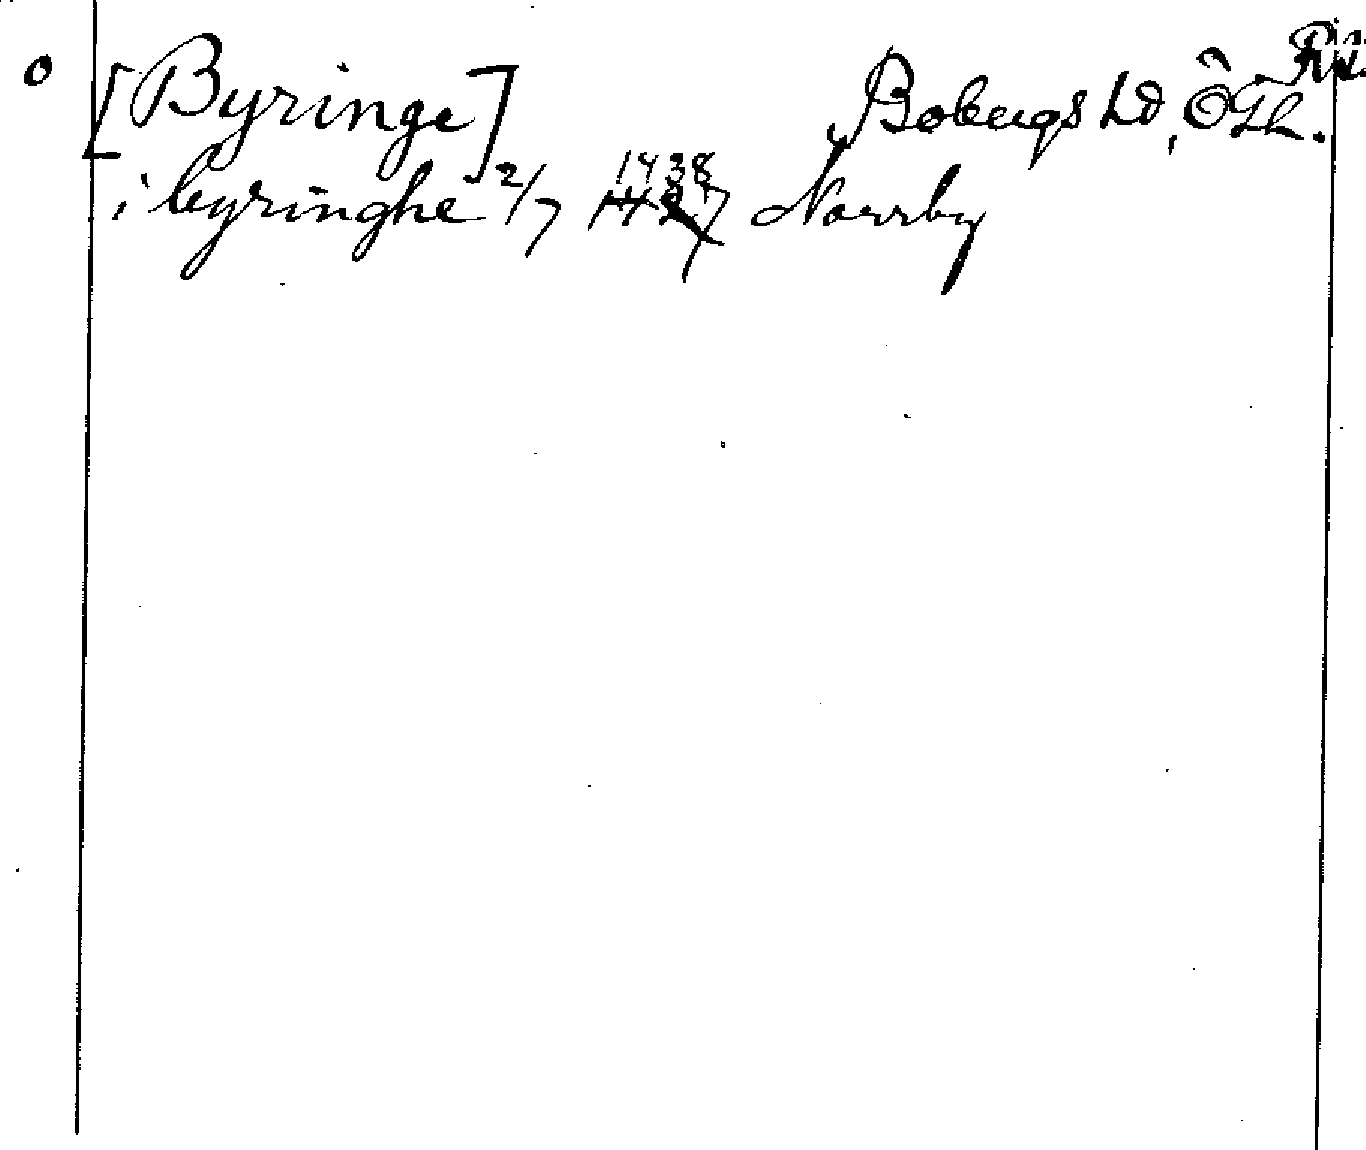 o [Byringe] Bobergs hd, ÖGL.
i byringhe 2/7 1438 Norrby